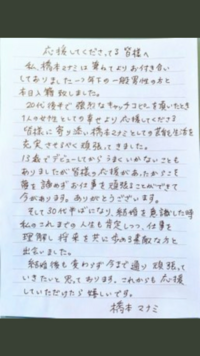 応援してくださってる皆様へ
私、橋本マナミは兼ねてよりお付き合い
しておりました一つ年下の一般男性の方と
本日入籍致しました。
20代後半で強烈なキャッチコピーを頂いたとき
1人の女性としての幸せより応援してくださる
皆様に寄り添い橋本マナミとしての芸能生活を
充実させるべく頑張ってきました。
13歳でデビューしてからうまくいかないことも
ありましたが皆様の応援があったからこそ
夢を諦めずお仕事を頑張ることができて
今があります。ありがとうございます。
そして30代半ばになり、結婚を意識した時
私のこれまでの人生も肯定しつつ、仕事を
理解し将来を共に歩める素敵な方と
出会いました。
結婚後も変わらず今まで通り頑張って
いきたいと思っております。これからも応援
していただけたら嬉しいです。
橋本マナミ